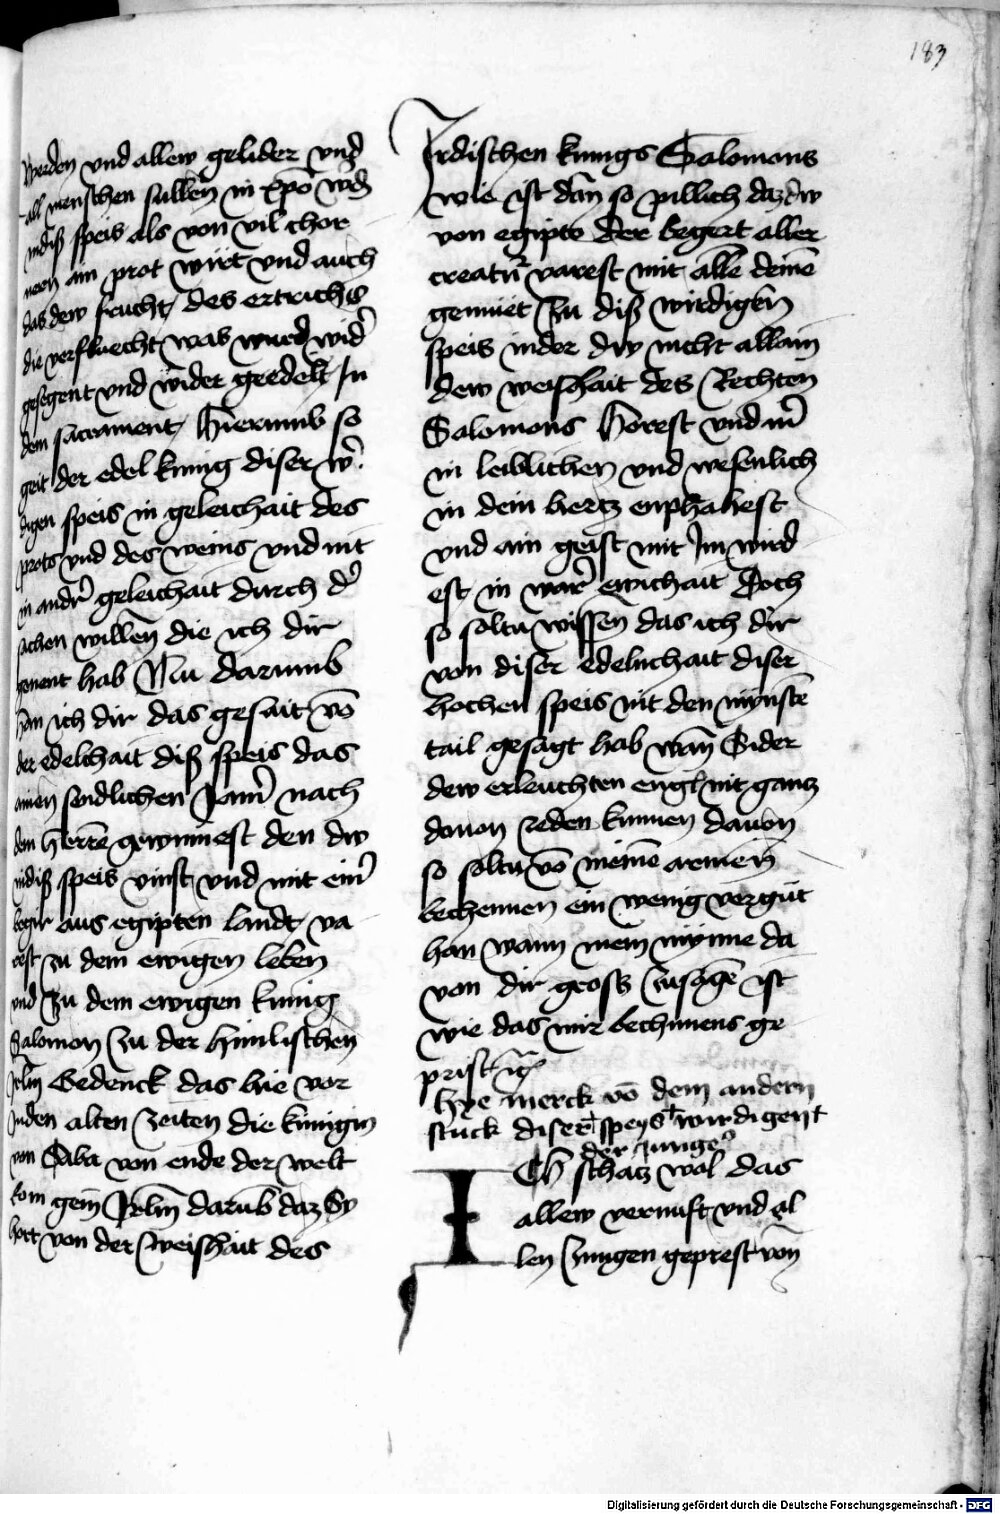 183
werden vnd allew gelider vnd
all menschen sullen in xpo werd
in diß speis als von vil chor
nern ain prot wirt vnd auch
das dew frucht des ertrichs
die verfluecht was wurd wid̄
gesegent vnd wider geedelt In
dem sacrament hierumb so
geit der edel kunig diser wir
digen speis in geleichait des
prots vnd des weins vnd nit
in andr̄ geleichait durch d̄
sachen willen die ich dir
genent hab Nu darumb
han ich dir das gesait vō
der edelchait diß speis das
ainen sendlichen Jam̄ nach
dem herrē gewinnest den dw
in diß speis vinst vnd mit ein̄
begir aus egipten landt va
rest zu dem ewigen leben
vnd zu dem ewigen kunig
Salomon zu der himlischen
Jrlm̄ Gedenck das hie vor
In den alten zeiten die kunigin
von Saba von ende der welt
kom gem̄ Jrlm̄ darūb daz Sy
hort von der weishait des
Irdischen kunigs Salomons
wie ist dan so pillich daz dw
von egipto der begert aller
creatur̄ varest mit allē deinē
gemuet zu diß wirdigen
speis in der dw nicht allain
dew weishait des Rechten
Salomons horest vnd in̄
in leiblichen vnd wesenlich
in dein hertz enphahest
vnd ain geist mit Im wird
est in war̄ ewichait Doch
so soltu wissen das ich dir
von diser edelnchait diser
hochen speis nit den mynstē
tail gesagt hab wan Sider
dew erleuchten engl nit gantz
douon reden kunnen dauon
so soltu vō meinē armen
bechennen ein wenig vergut
han wann mein mynne da
von dir gross zusagē ist
wie das mir bechinens ge
prist ꝛc
Hye merck vō dem andern
stuck diser speys wirdigent
der Junge
ICh schatz wol das
allew vernuft vnd al
len zungen geprest von
Digitalisierung gefördert durch die Deutsche Forschungsgemeinschaft - DFG